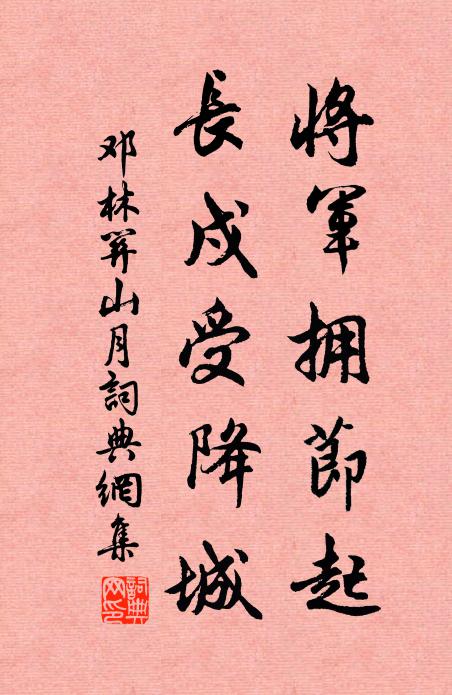 將軍拥節起
長戍受降城
邓林关山月詞典網集
詞典網印